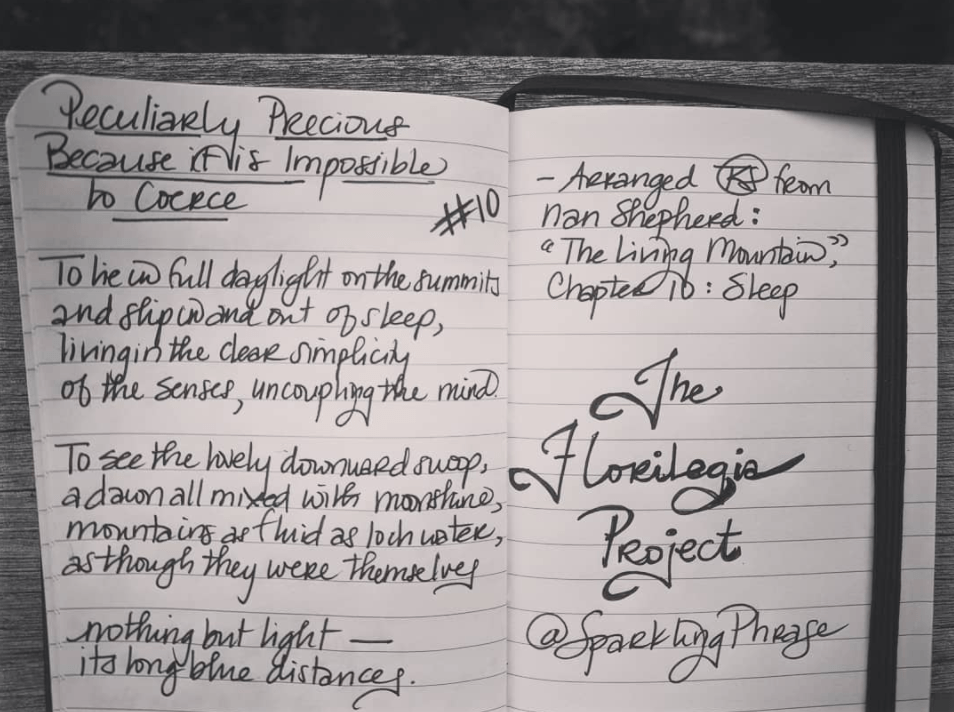 Peculiarly Precious
Because it is Impossible
to Coerce
#10
To lie in full daylight on the summits
and slip in and out of sleep,
living in the clear simplicity
of the senses, uncoupling the mind.
To see the lovely downward swoop,
a dawn all mixed with moonshine,
mountains as fluid as loch water,
as though they were themselves
nothing but light —
its long blue distances.
- Arranged from
Nan Shepherd:
"The Living Mountain,"
Chapter 10: Sleep
The
Florilegia
Project
@SparklingPhrase